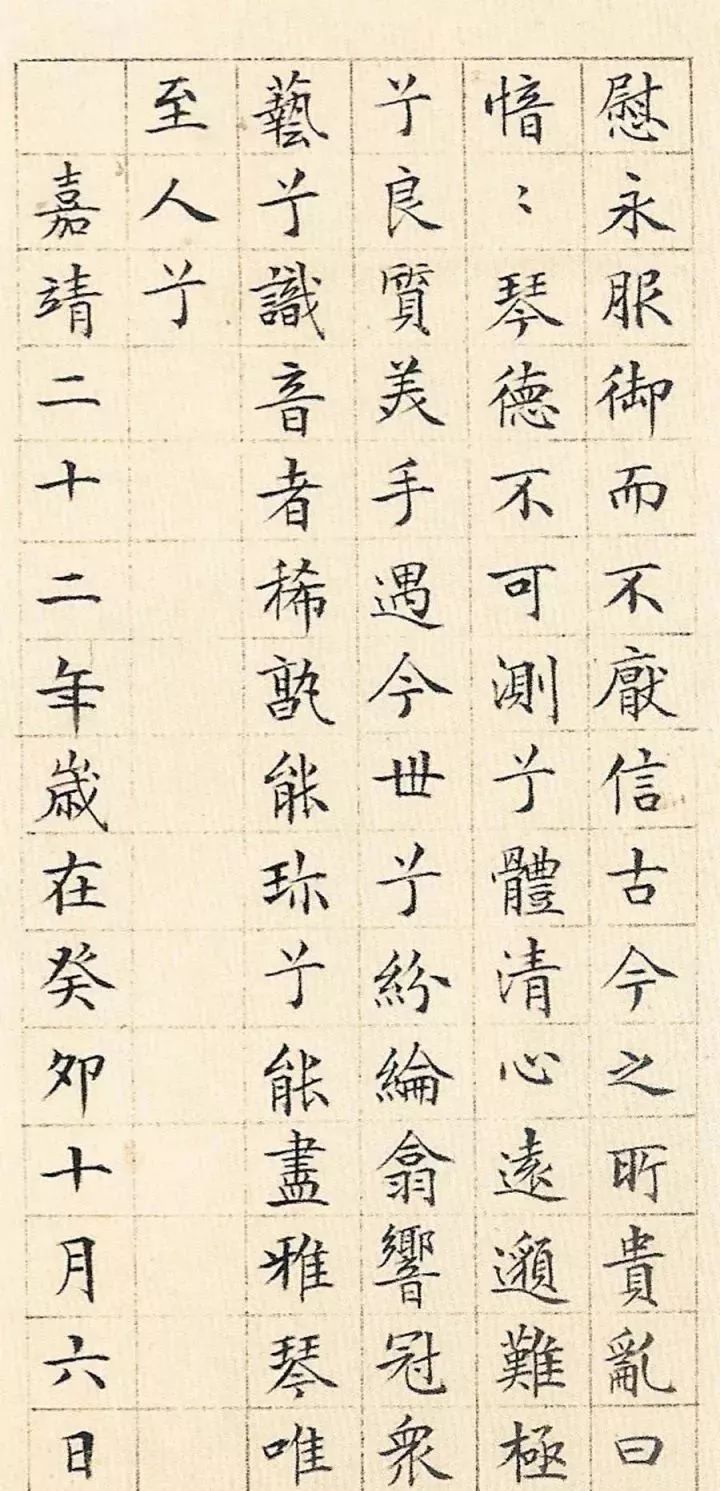 慰永服御而不厭信古今之所貴亂曰
愔〻琴德不可測兮體清心遠邈難極
兮良質美手遇今世兮紛綸翕響冠衆
藝兮識音者稀孰能珎兮能盡雅琴唯
至人兮
嘉靖二十二年歲在癸卯十月六日